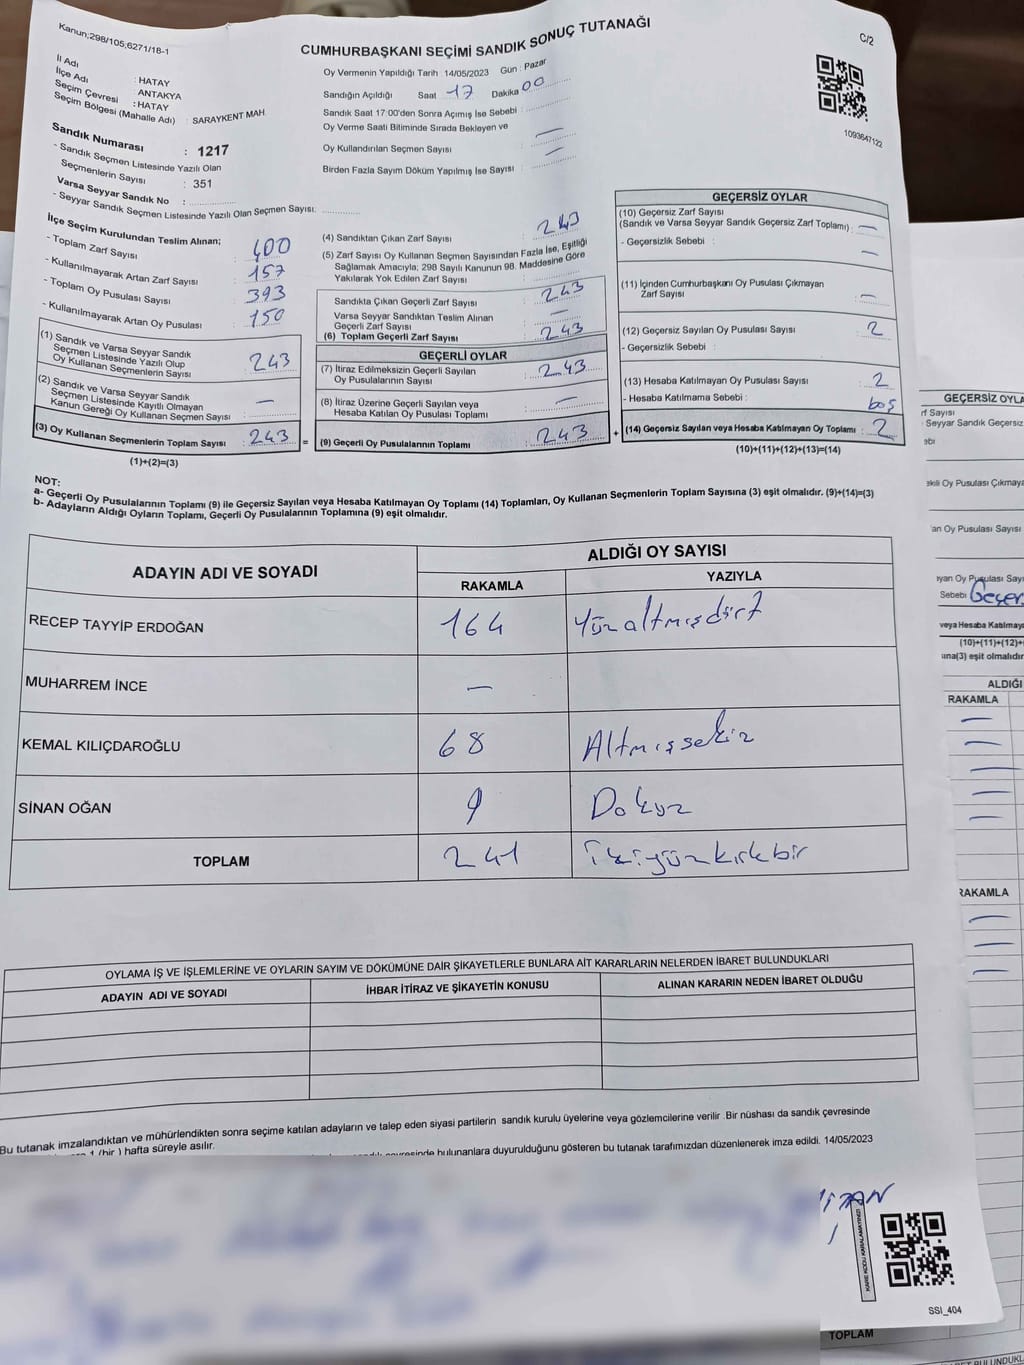 Kanun;298/105;6271/18-1
CUMHURBAŞKANI SEÇİMİ SANDIK SONUÇ TUTANAĞI
C/2
İl Adı : HATAY
İlçe Adı : ANTAKYA
Seçim Çevresi : HATAY
Seçim Bölgesi (Mahalle Adı) : SARAYKENT MAH.
Oy Vermenin Yapıldığı Tarih 14/05/2023 Gün : Pazar
Sandığın Açıldığı Saat 17 Dakika 00
Sandık Saat 17:00'den Sonra Açımış İse Sebebi :
Oy Verme Saati Bitiminde Sırada Bekleyen ve
Oy Kullandırılan Seçmen Sayısı : —
Birden Fazla Sayım Döküm Yapılmış İse Sayısı : —
1093647122
Sandık Numarası : 1217
- Sandık Seçmen Listesinde Yazılı Olan
Seçmenlerin Sayısı : 351
Varsa Seyyar Sandık No :
- Seyyar Sandık Seçmen Listesinde Yazılı Olan Seçmen Sayısı:
İlçe Seçim Kurulundan Teslim Alınan;
- Toplam Zarf Sayısı : 400
- Kullanılmayarak Artan Zarf Sayısı : 157
- Toplam Oy Pusulası Sayısı : 393
- Kullanılmayarak Artan Oy Pusulası : 150
(1) Sandık ve Varsa Seyyar Sandık
Seçmen Listesinde Yazılı Olup
Oy Kullanan Seçmenlerin Sayısı : 243
(2) Sandık ve Varsa Seyyar Sandık
Seçmen Listesinde Kayıtlı Olmayan
Kanun Gereği Oy Kullanan Seçmen Sayısı : —
(3) Oy Kullanan Seçmenlerin Toplam Sayısı : 243 =
(1)+(2)=(3)
(4) Sandıktan Çıkan Zarf Sayısı : 243
(5) Zarf Sayısı Oy Kullanan Seçmen Sayısından Fazla İse, Eşitliği
Sağlamak Amacıyla; 298 Sayılı Kanunun 98. Maddesine Göre
Yakılarak Yok Edilen Zarf Sayısı :
Sandıkta Çıkan Geçerli Zarf Sayısı : 243
Varsa Seyyar Sandıktan Teslim Alınan
Geçerli Zarf Sayısı : —
(6) Toplam Geçerli Zarf Sayısı : 243
GEÇERLİ OYLAR
(7) İtiraz Edilmeksizin Geçerli Sayılan
Oy Pusulalarının Sayısı : 243
(8) İtiraz Üzerine Geçerli Sayılan veya
Hesaba Katılan Oy Pusulaları Toplamı : —
(9) Geçerli Oy Pusulalarının Toplamı : 243 +
GEÇERSİZ OYLAR
(10) Geçersiz Zarf Sayısı
(Sandık ve Varsa Seyyar Sandık Geçersiz Zarf Toplamı) : —
- Geçersizlik Sebebi : —
(11) İçinden Cumhurbaşkanı Oy Pusulası Çıkmayan
Zarf Sayısı : —
(12) Geçersiz Sayılan Oy Pusulası Sayısı : 2
- Geçersizlik Sebebi :
(13) Hesaba Katılmayan Oy Pusulası Sayısı : 2
- Hesaba Katılmama Sebebi : boş
(14) Geçersiz Sayılan veya Hesaba Katılmayan Oy Toplamı : 2
(10)+(11)+(12)+(13)=(14)
NOT:
a- Geçerli Oy Pusulalarının Toplamı (9) ile Geçersiz Sayılan veya Hesaba Katılmayan Oy Toplamı (14) Toplamları, Oy Kullanan Seçmenlerin Toplam Sayısına (3) eşit olmalıdır. (9)+(14)=(3)
b- Adayların Aldığı Oyların Toplamı, Geçerli Oy Pusulalarının Toplamına (9) eşit olmalıdır.
ADAYIN ADI VE SOYADI
ALDIĞI OY SAYISI
RAKAMLA YAZIYLA
RECEP TAYYİP ERDOĞAN 164 Yüzaltmışdört
MUHARREM İNCE —
KEMAL KILIÇDAROĞLU 68 Altmışsekiz
SİNAN OĞAN 9 Dokuz
TOPLAM 241 ikiyüzkırkbir
OYLAMA İŞ VE İŞLEMLERİNE VE OYLARIN SAYIM VE DÖKÜMÜNE DAİR ŞİKAYETLERLE BUNLARA AİT KARARLARIN NELERDEN İBARET BULUNDUKLARI
ADAYIN ADI VE SOYADI İHBAR İTİRAZ VE ŞİKAYETİN KONUSU ALINAN KARARIN NEDEN İBARET OLDUĞU
Bu tutanak imzalandıktan ve mühürlendikten sonra seçime katılan adayların ve talep eden siyasi partilerin sandık kurulu üyelerine veya gözlemcilerine verilir .Bir nüshası da sandık çevresinde
1 (bir ) hafta süreyle asılır.
bulunanlara duyurulduğunu gösteren bu tutanak tarafımızdan düzenlenerek imza edildi. 14/05/2023
KARE KODU KARALAMAYINIZ!
SSI_404
GEÇERSİZ OYLA
rf Sayısı
Seyyar Sandık Geçersiz
ebi
ekili Oy Pusulası Çıkmaya
an Oy Pusulası Sayısı
ayan Oy Pusulası Sayı
Sebebi Geçer
veya Hesaba Katılmaya
(10)+(11)+(12)+
una(3) eşit olmalıdır
ALDIĞI
RAKAMLA
—
—
—
—
—
RAKAMLA
—
—
—
TOPLAM